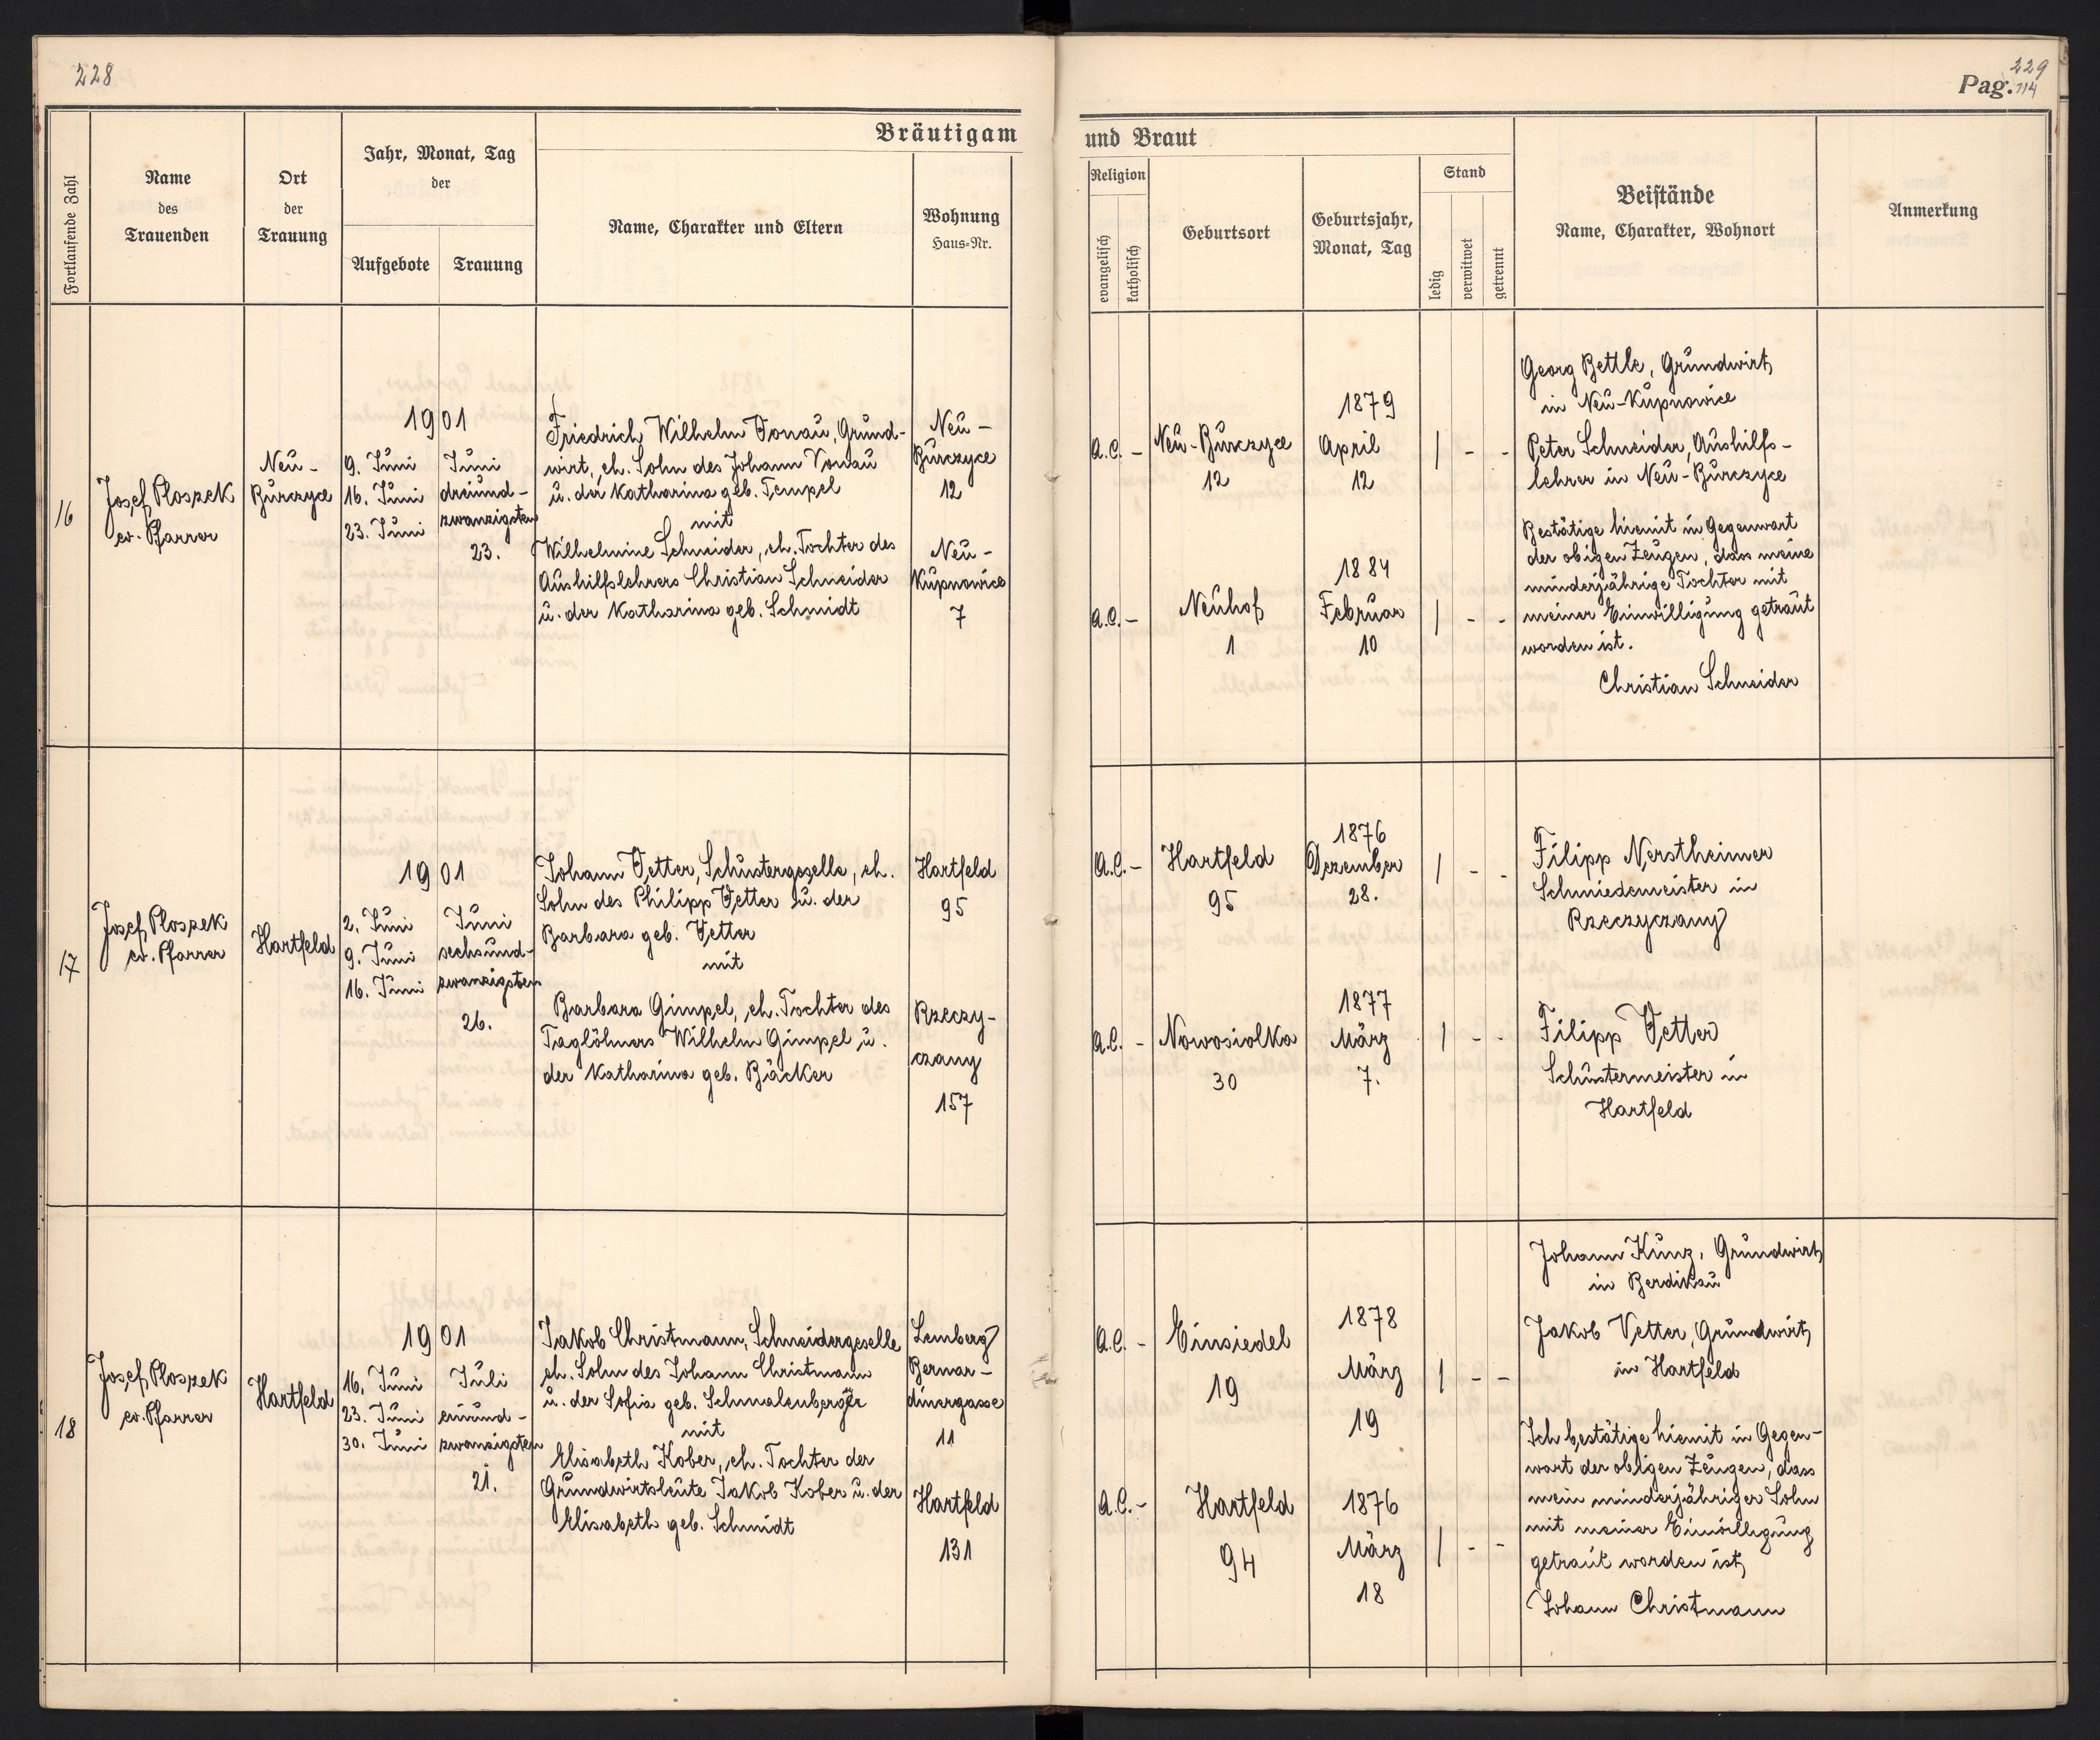 228
229
Pag. 114
Bräutigam
und Braut
Fortlaufende Zahl
Name
des
Trauenden
Ort
der
Trauung
Jahr, Monat, Tag
der
Aufgebote
Trauung
Name, Charakter und Eltern
Wohnung
Haus=Nr.
Religion
evangelisch
katholisch
Geburtsort
Geburtsjahr,
Monat, Tag
Stand
ledig
verwitwet
getrennt
Beistände
Name, Charakter, Wohnort
Anmerkung
16
Josef Ploszek
ev. Pfarrer
Neu-
Burczyce
1901
9. Juni
16. Juni
23. Juni
Juni
dreiund-
zwanzigsten
23.
Friedrich Wilhelm Vonau, Grund-
wirt, eh. Sohn des Johann Vonau
u. der Katharina geb. Tempel
mit
Wilhelmine Schneider, eh. Tochter des
Aushilfslehrers Christian Schneider
u. der Katharina geb. Schmidt
Neu-
Burczyce
12
Neu-
Kupnowice
7
A.C. -
Neu-Burczyce
12
1879
April
12
/ - -
A.C. -
Neuhof
1
1884
Februar
10
/ - -
Georg Bettle, Grundwirt
in Neu-Kupnowice
Peter Schneider, Aushilfs-
lehrer in Neu-Burczyce
Bestätige hiemit in Gegenwart
der obigen Zeugen, dass meine
minderjährige Tochter mit
meiner Einwilligung getraut
worden ist.
Christian Schneider
17
Josef Ploszek
ev. Pfarrer
Hartfeld
1901
2. Juni
9. Juni
16. Juni
Juni
sechsund-
zwanzigsten
26.
Johann Vetter, Schustergeselle, eh.
Sohn des Philipp Vetter u. der
Barbara geb. Vetter
mit
Barbara Gimpel, eh. Tochter des
Taglöhners Wilhelm Gimpel u.
der Katharina geb. Bäcker
Hartfeld
95
Rzeczy-
czany
157
A.C. -
Hartfeld
95
1876
Dezember
28.
/ - -
A.C. -
Nowosiolka
30
1877
März
7.
/ - -
Filipp Nerstheimer
Schmiedemeister in
Rzeczyczany
Filipp Vetter
Schustermeister in
Hartfeld
18
Josef Ploszek
ev. Pfarrer
Hartfeld
1901
16. Juni
23. Juni
30. Juni
Juli
einund-
zwanzigsten
21.
Jakob Christmann, Schneidergeselle
eh. Sohn des Johann Christmann
u. der Sofia geb. Schmalenberger
mit
Elisabeth Kober, eh. Tochter der
Grundwirtsleute Jakob Kober u. der
Elisabeth geb. Schmidt
Lemberg
Bernar-
dinergasse
11
Hartfeld
131
A.C. -
Einsiedel
19
1878
März
19
/ - -
A.C. -
Hartfeld
94
1876
März
18
/ - -
Johann Kunz, Grundwirt
in Berdikau
Jakob Vetter, Grundwirt
in Hartfeld
Ich bestätige hiemit in Gegen-
wart der obigen Zeugen, dass
mein minderjähriger Sohn
mit meiner Einwilligung
getraut worden ist
Johann Christmann